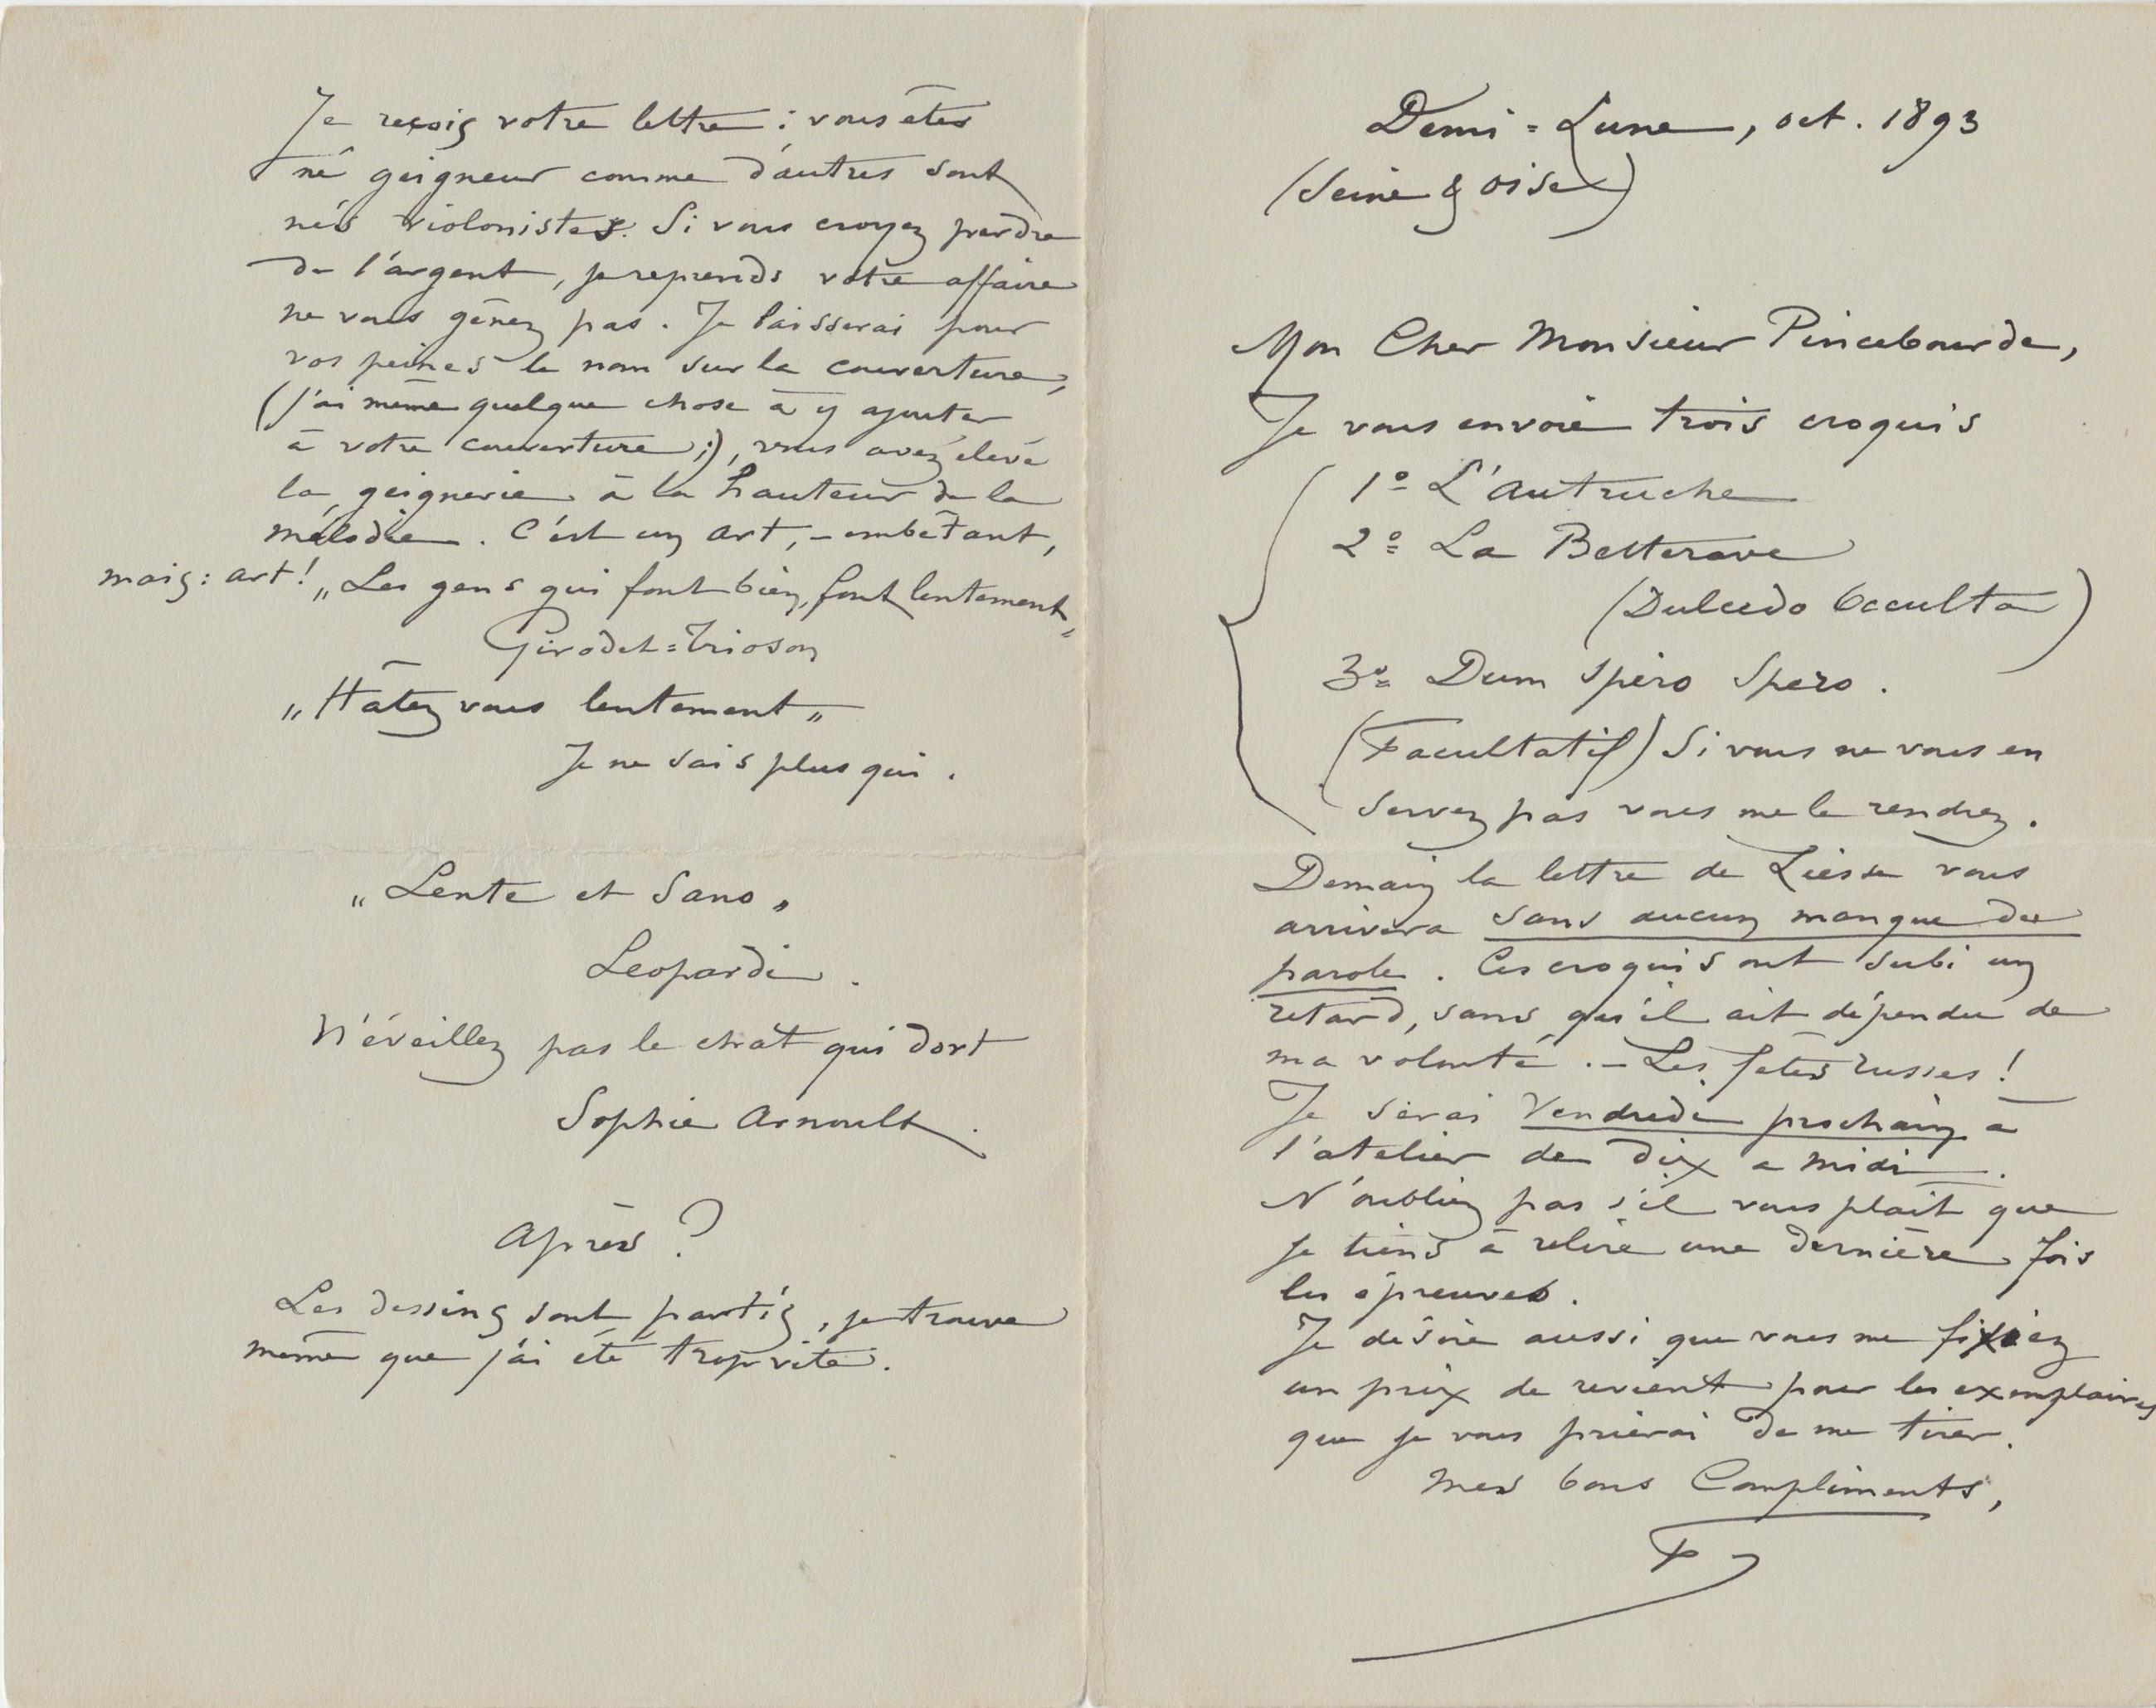 Demi=Lune, oct. 1893
(Seine & Oise)
Mon Cher Monsieur Pincebourde,
Je vous envoie trois croquis
1º L'Autruche
2º La Betterave
(Dulcedo Occulta)
3º Dum spiro spero.
(Facultatif) Si vous ne vous en
servez pas vous me le rendrez.
Demain la lettre de Liesse vous
arrivera sans aucun manque de
parole. Ces croquis ont subi un
retard, sans qu'il ait dépendu de
ma volonté. – Les fêtes russes!
Je serai Vendredi prochain à
l'atelier de dix a midi.
N'oubliez pas s'il vous plait que
je tiens à relire une dernière fois
les épreuves.
Je désire aussi que vous me fixiez
un prix de revient pour les exemplaires
que je vous prierai de me tirer.
Mes bons Compliments,
F
Je reçois votre lettre : vous êtes
né geigneur comme d'autres sont
nés violonistes. Si vous croyez perdre
de l'argent, je reprends votre affaire
ne vous gênez pas. Je laisserai pour
vos peines le nom sur la couverture,
(j'ai même quelque chose à y ajouter
à votre couverture;), vous avez élevé
la geignerie à la hauteur de la
mélodie. C'est un art, – embêtant,
mais : art! „Les gens qui font bien, font lentement„
Girodet=Trioson
„Hâtez vous lentement„
Je ne sais plus qui.
„Lente et Sano„
Leopardi.
N'éveillez pas le chât qui dort
Sophie Arnoult.
Après?
Les dessins sont partis, je trouve
même que j'ai été trop vite.